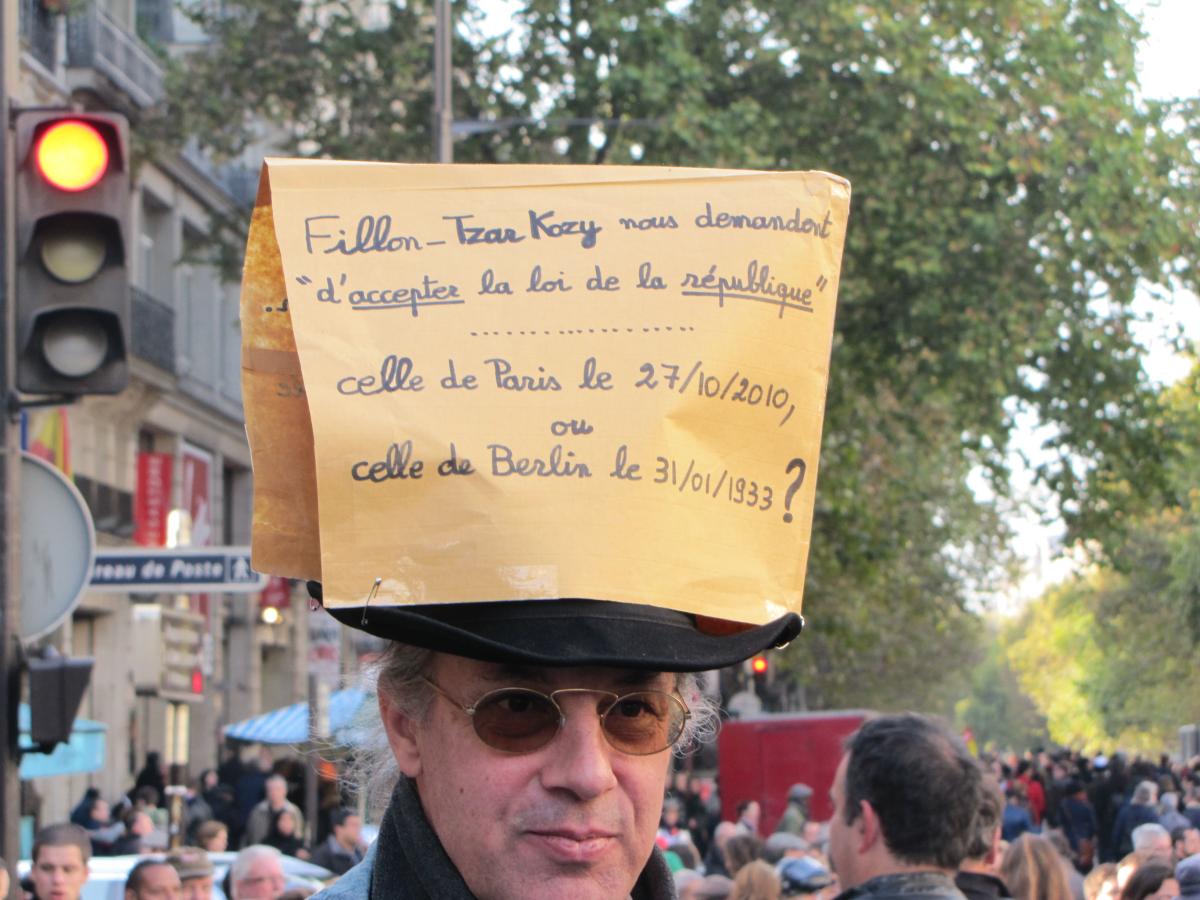 Fillon_Tzar Kozy nous demandent
"d'accepter la loi de la république"
celle de Paris le 27/10/2010,
ou
celle de Berlin le 31/01/1933 ?
reau de Poste